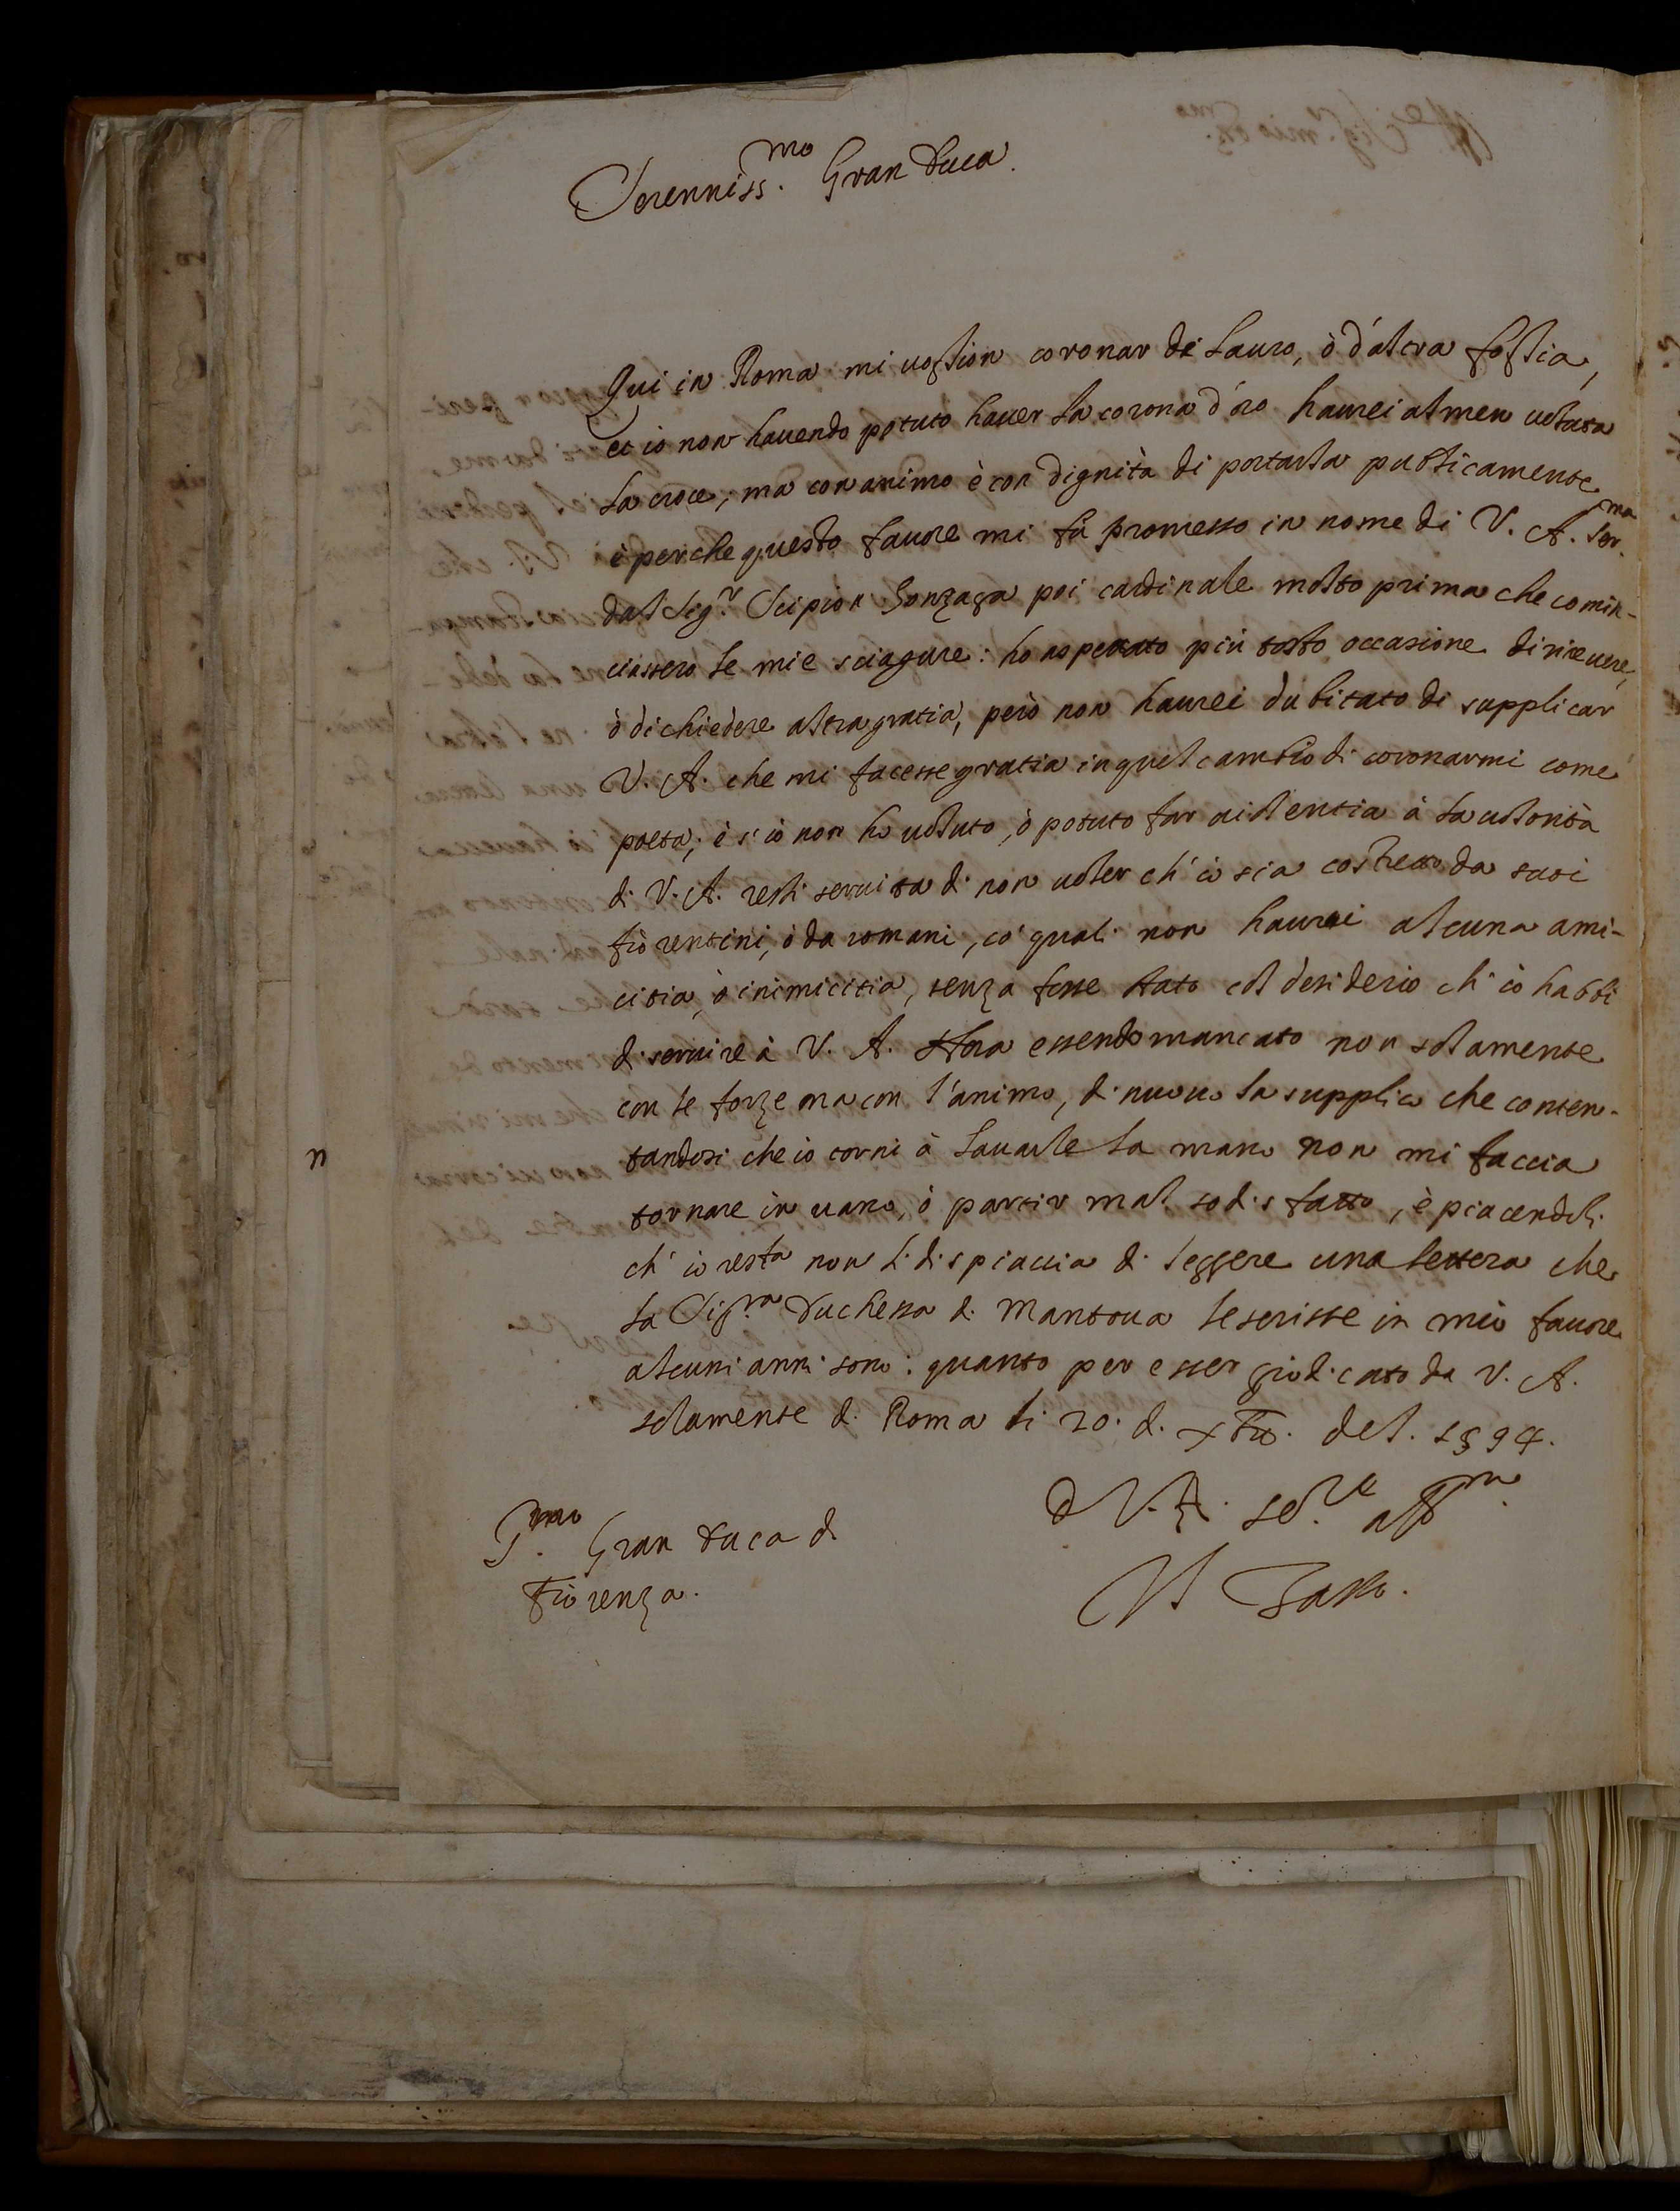 Serenniss.mo Gran Duca.
Qui in Roma mi voglion coronar di lauro, ò d'altra foglia,
et io non havendo potuto haver la corona d'oro haurei almen voluta
la croce; ma con animo è con dignità di portarla publicamente
è perche questo favore mi fù promesso in nome di V. A. Ser.ma
dal Sig.r Scipion Gonzaga poi cardinale molto prima che comin-
ciassero le mie sciagure: ho aspettato più tosto occasione di ricevere,
ò di chiedere altra gratia, però non haurei dubitato di supplicar
V. A. che mi facesse gratia in quel cambio di coronarmi come
poeta; è s'io non ho voluto, ò potuto far violentia à la volontà
di V. A. resti servita di non voler ch'io sia costretto da suoi
fiorentini, ò da romani, co' quali non haurei alcuna ami-
citia, ò inimicitia, senza fosse stato col desiderio ch'io habbi
di servire à V. A. Hora essendo mancato non solamente
con le forze ma con l'animo, di nuovo la supplico che conten-
tandosi che io torni à la mano non mi faccia
tornare in vano, ò partir mal sodisfatto, è piacendoli
ch'io resta non li dispiaccia di leggere una lettera che
la Sig.ra Duchessa di Mantova le scrisse in mio favore
alcuni anni sono: quanto per esser giudicato da V. A.
solamente di Roma li 20. di xbre. del. 1594.
D V. A. se.re aff.mo
Il Tasso.
S.mo Gran Duca di
Fiorenza.
n